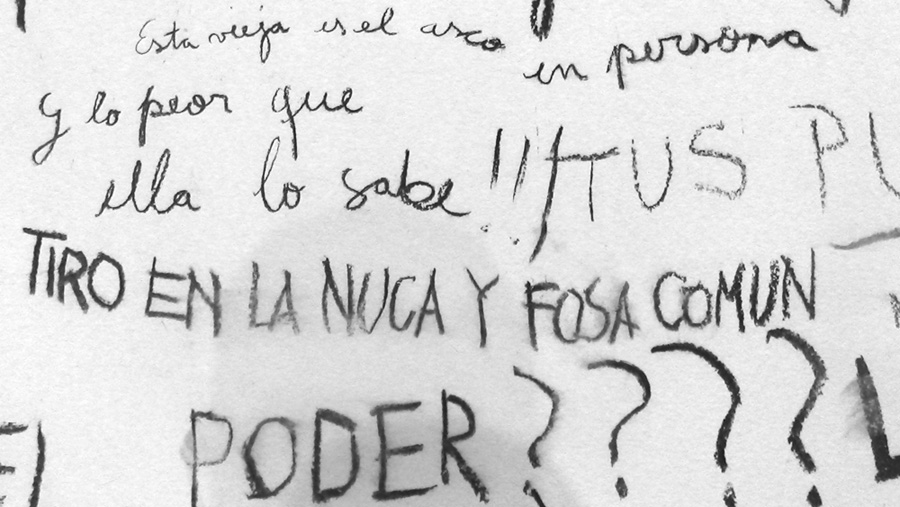 Esta vieja es el asco en persona
y lo peor que
ella lo sabe!!!
TUS PU
TIRO EN LA NUCA Y FOSA COMUN
EL PODER????
L